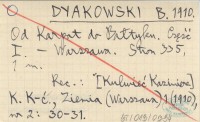 DYAKOWSKI B. 1910.
Od Karpat do Bałtyku. Część
I. - Warszawa. Stron 335,
1 m.
Rec.: [Kulwieć Kazimierz]
K. K-ć., Ziemia (Warszawa) 1 (1910),
nr 2: 30-31.